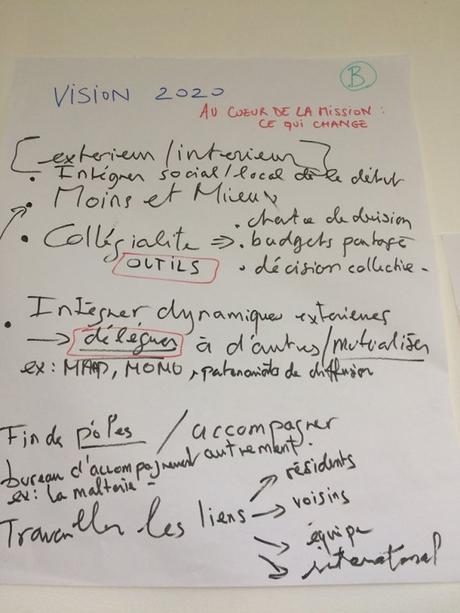 B
VISION 2020
AU CŒUR DE LA MISSION :
CE QUI CHANGE
[exterieur/interieur]
• Intégrer social/local dès le début
• Moins et Mieux
• Collégialité ⇒ • charte de décision
• budgets partagé
OUTILS • décision collective -
• Intégrer dynamiques exterieures
→ déléguer à d'autres/mutualiser
ex: MAAP, MOMO, partenariats de diffusion
Fin de pôles / accompagner
autrement.
bureau d'accompagnement
ex: la malterie -
Travailler les liens → résidents
→ voisins
→ équipe
→ international